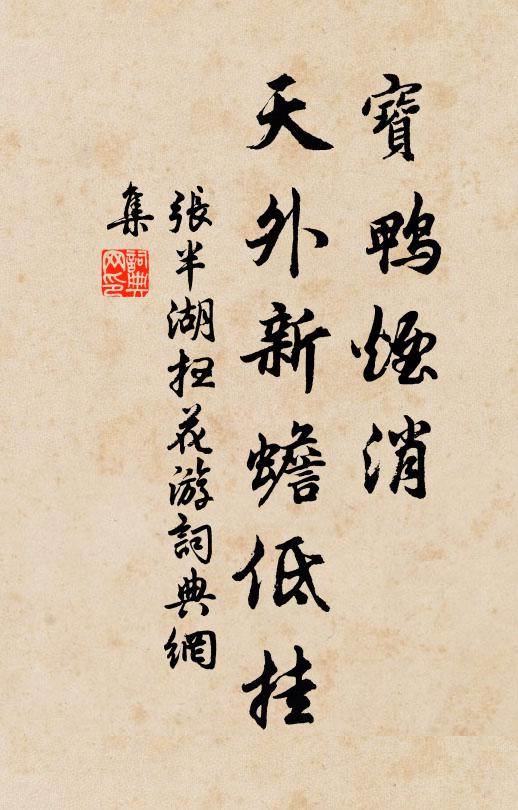 寶鴨煙消
天外新蟾低挂
張半湖扫花游詞典網
集
詞典
网印